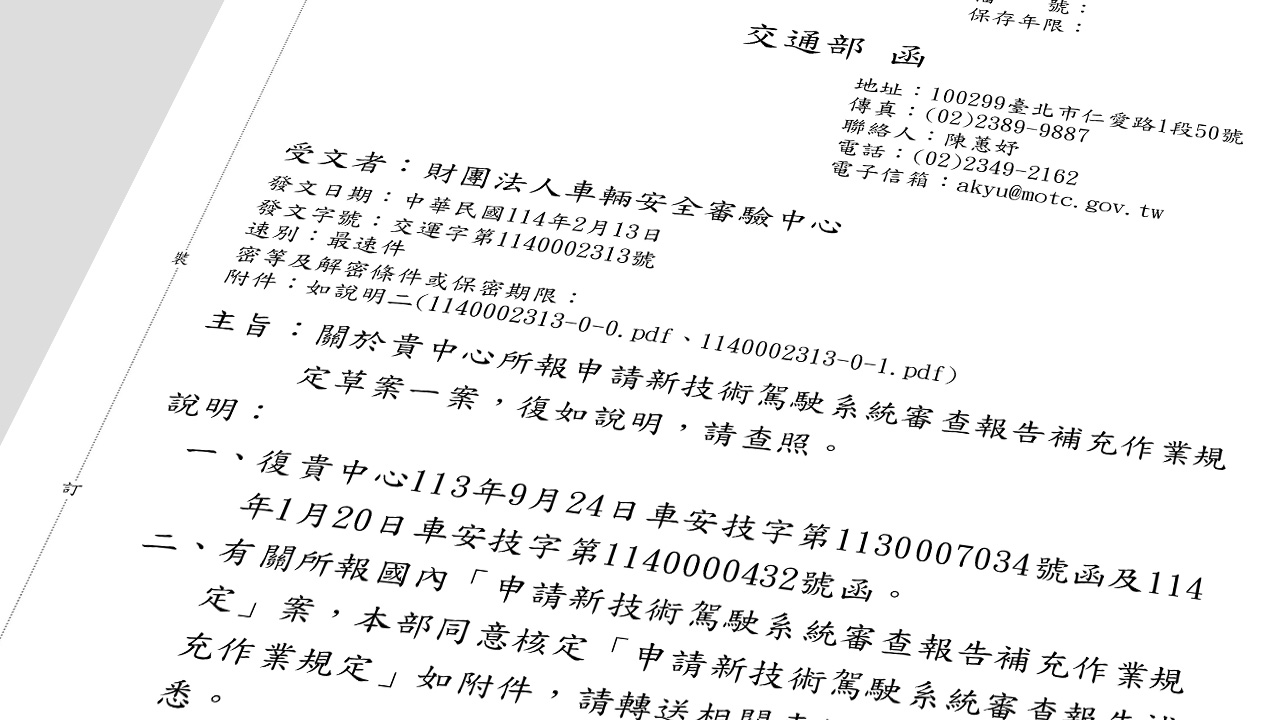 號：
保存年限：
交通部 函
地址：100299臺北市仁愛路1段50號
傳真：(02)2389-9887
聯絡人：陳蕙妤
電話：(02)2349-2162
電子信箱：akyu@motc.gov.tw
受文者：財團法人車輛安全審驗中心
發文日期：中華民國114年2月13日
發文字號：交運字第1140002313號
速別：最速件
密等及解密條件或保密期限：
附件：如說明二(1140002313-0-0.pdf、1140002313-0-1.pdf)
主旨：關於貴中心所報申請新技術駕駛系統審查報告補充作業規
定草案一案，復如說明，請查照。
說明：
一、復貴中心113年9月24日車安技字第1130007034號函及114
年1月20日車安技字第1140000432號函。
二、有關所報國內「申請新技術駕駛系統審查報告補充作業規
定」案，本部同意核定「申請新技術駕駛系統審查報告補
充作業規定」如附件，請轉送相關
悉。
裝
訂